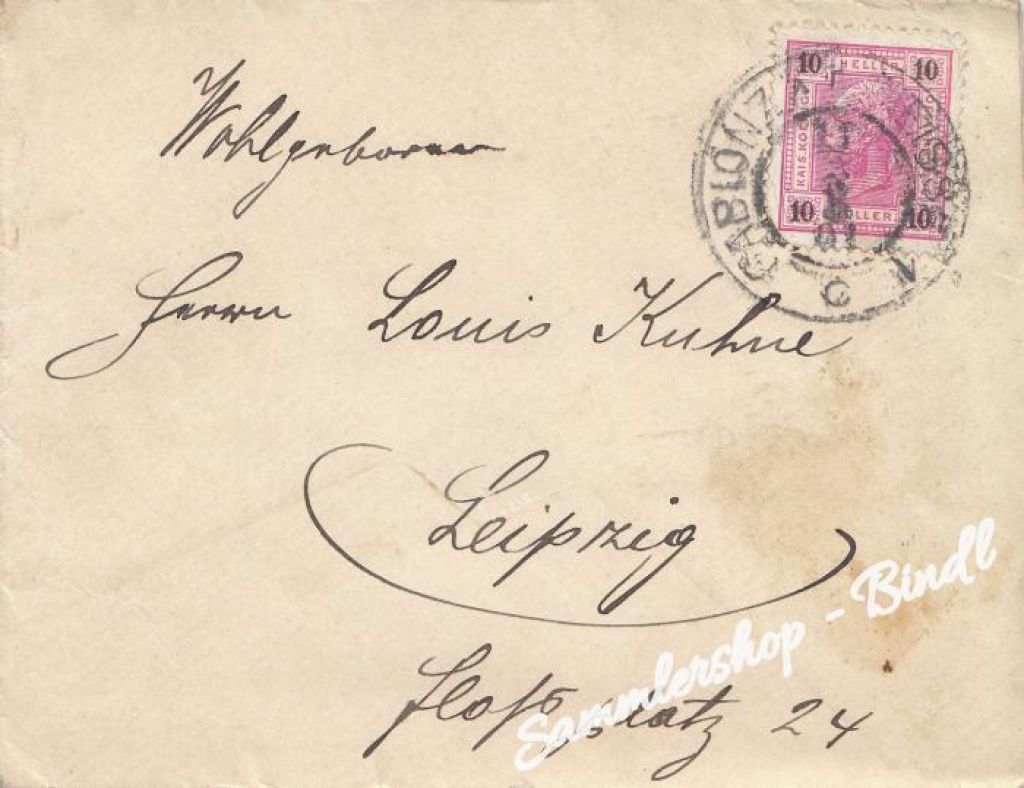 10 HELLER 10
KAIS.KOE
10 HELLER 10
GABLONZ
Wohlgeboren
Herrn Louis Kuhne
Leipzig
Floßplatz 24
Sammlershop - Bindl